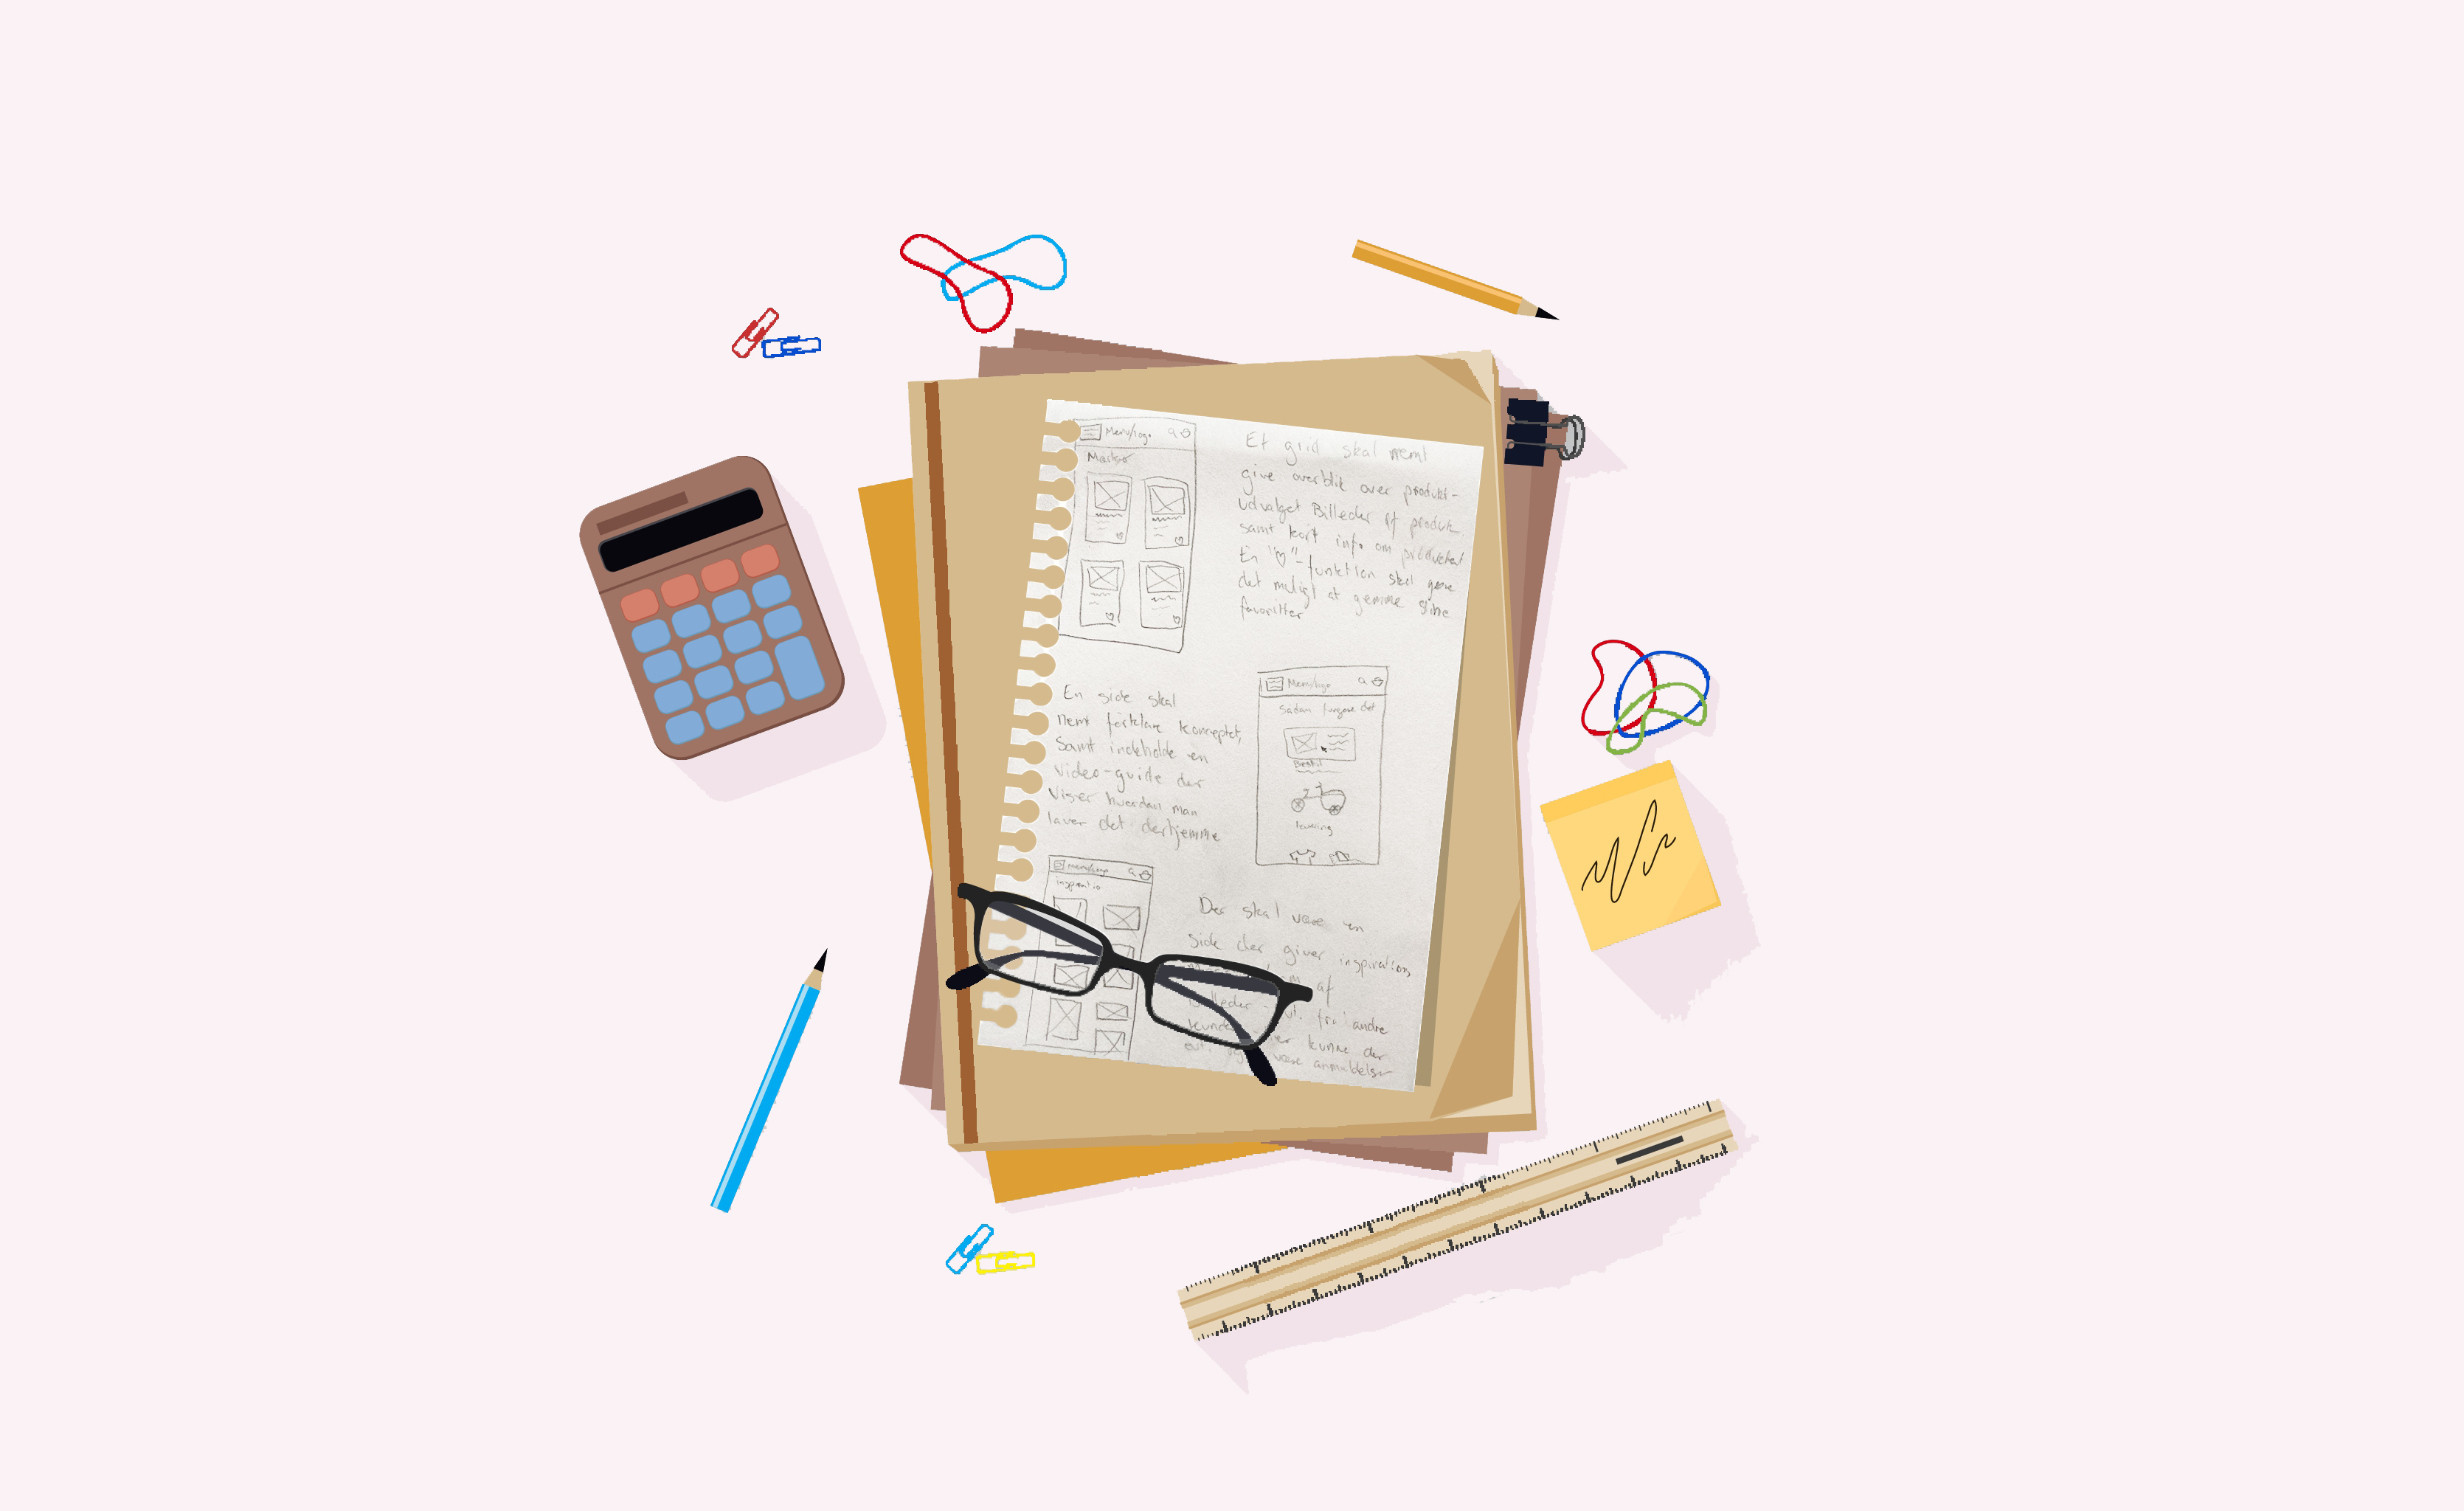 Menu/logo
Et grid skal nemt
give overblik over produkt-
udvalget Billeder af produk
samt kort info om produktet
En "♡"-funktion skal gøre
det muligt at gemme sine
favoritter
En side skal
nemt forklare konceptet,
Samt indeholde en
video-guide der
Viser hvordan man
laver det derhjemme
Menu/logo
Sådan fungere det
Bestil
levering
menu/logo
inspiratio
Der skal være en
side der giver inspiration
af
Billeder
fra andre
kunde
kunne der
være anmeldelser